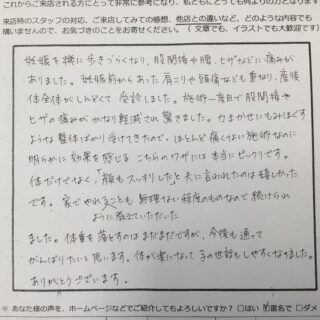 これからご来店される方にとって非常に参考になり、私どもにとっても何よりの力となります
来店時のスタッフの対応、ご来店してみての感想、他店との違いなど、どのような内容でも
構いませんので、お気づきのことをお寄せください。(文章でも、イラストでも大歓迎です)
妊娠を機に歩きづらくなり、股関節や腰、ヒザなどに痛みが
ありました。妊娠前からあった肩こりや頭痛なども重なり、産後
体全体がしんどくて受診しました。施術一度目で股関節や
ヒザの痛みがかなり軽減され驚きました。力まかせにもみほぐす
ような整体ばかり受けてきたので、ほとんど痛くない施術なのに
明らかに効果を感じるこちらのワザには本当にビックリです。
体だけでなく、「顔もスッキリした」と夫に言われたのは嬉しかった
です。家でやれることも無理ない程度のものなので続けられ
ように教えていただいた
ました。体重を落とすのはまだまだですが、今後も通って
がんばりたいと思います。体が楽になって子の世話もしやすくなりました。
ありがとうございます。
※ あなた様の声を、ホームページなどでご紹介してもよろしいですか？ □はい ☑匿名で □ダメ